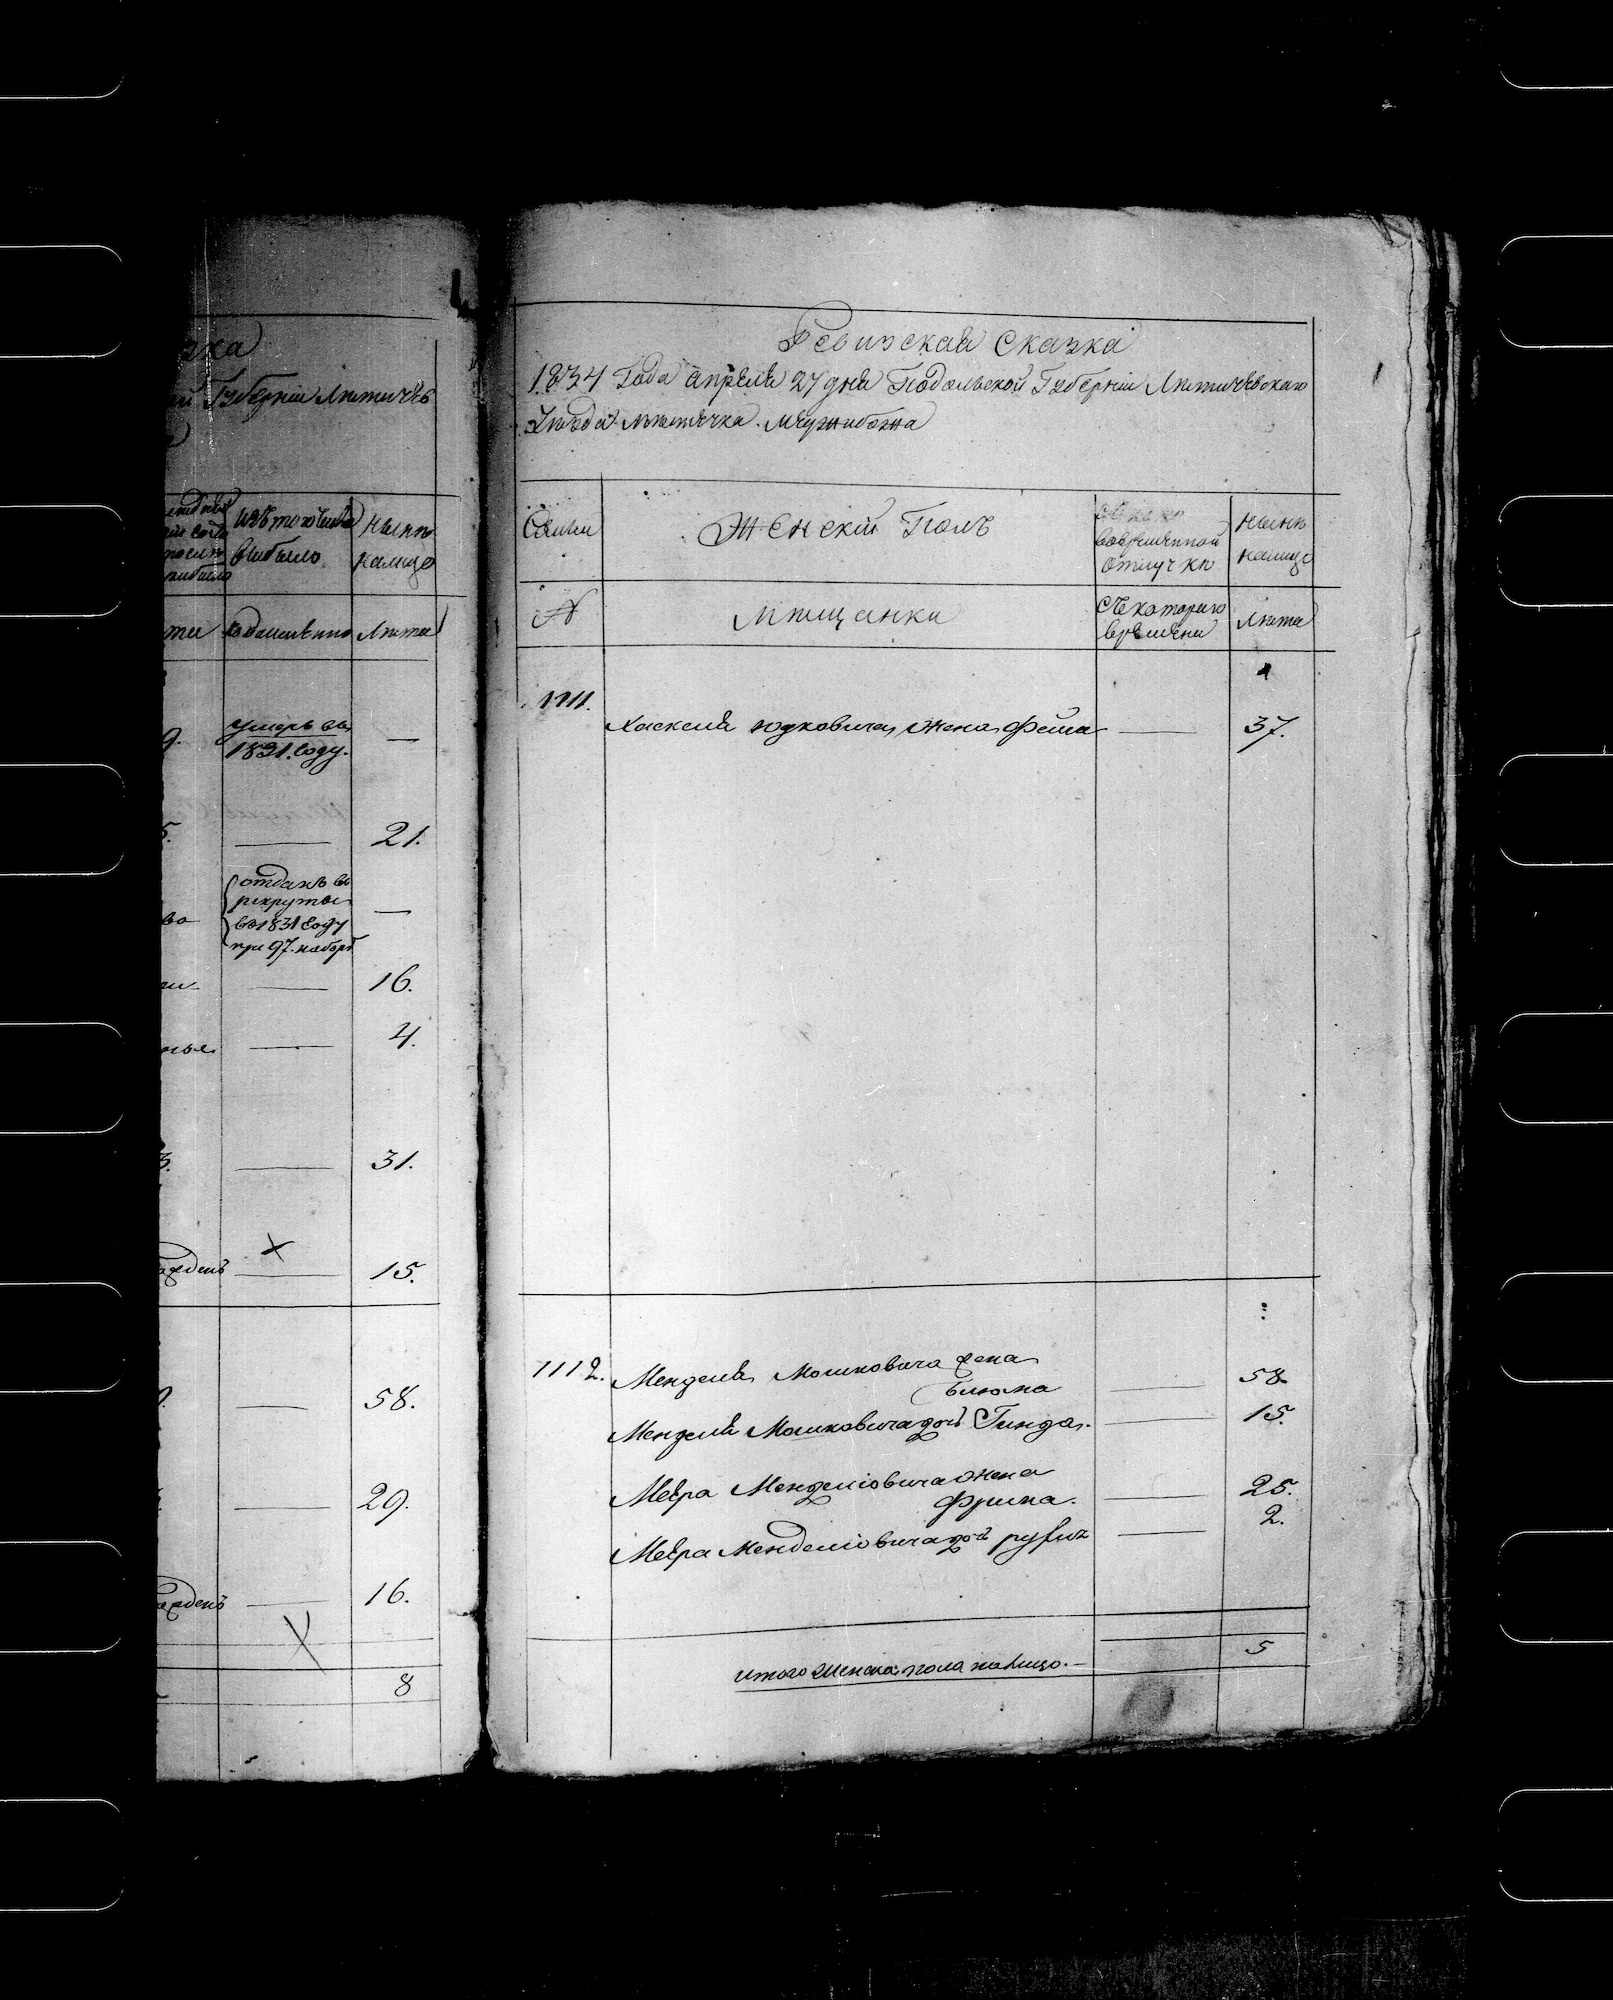 зка
ой Губернiи Литичев
изъ того числа выбыло
нынѣ налицо
Лѣта
умеръ въ 1831. году.
—
21.
отданъ въ
рекруты
въ 1831 году
при 97. наборѣ
—
16.
4.
31.
15.
58.
29.
16.
8
Ревизская Сказка
1834 Года Апреля 27 дня Подольской Губернiи Литичевскаго
Уѣзда Мѣстечка Меужибожа
Семьи
Женскiй Полъ
во временной
отлучкѣ
нынѣ
налицо
№
Мѣщанки
Съ котораго
времени
Лѣта
1111.
Хаскеля Юдковича Жена Фейга — 37.
1112. Менделя Мошковича жена
Блюма — 58
Менделя Мошковича дочь Гинда. — 15.
Меера Менделiовича жена
Фрима. — 25.
Меера Менделiовича дочь — 2.
итого Женска: пола налицо. — 5